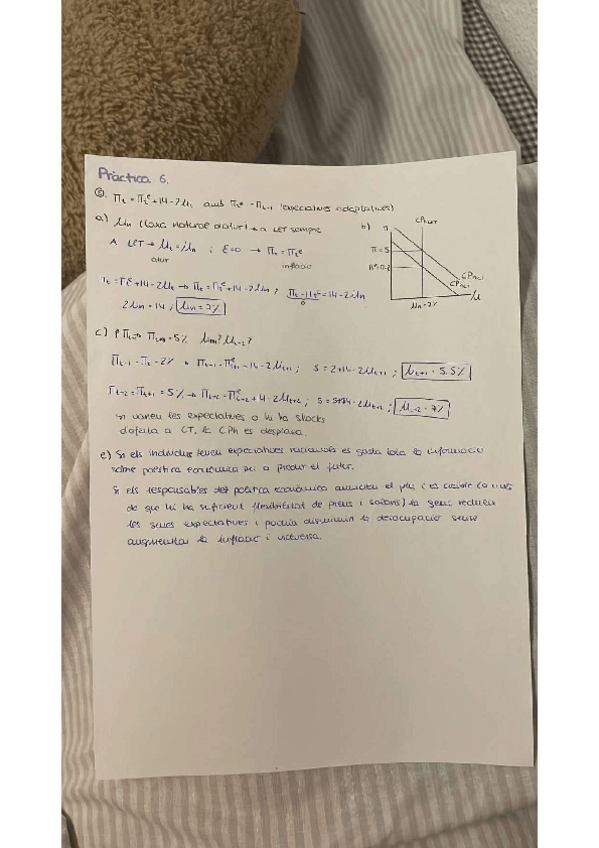 Pràctica 6.
⑤. Πt = Πt^e + 14 - 2μt amb Πt^e = Πt-1 (expectatives adaptatives)
a) μn (taxa natural d'atur) → a LET sempre
b)
CPLT
A LET → μt = μn ; ε=0 → Πt = Πt^e
atur
inflació
Π = 5
CPt+2
CPt+1
μ
μn = 7%
Πt = Πt^e + 14 - 2μt → Πt = Πt^e + 14 - 2μn ; Πt - Πt^e = 14 - 2μn
0
2μn = 14 ; μn = 7%
c) ↑Πt → Πt+1 = 5% μt+1? μt+2?
Πt-1 = Πt = 2% → Πt+1 = Πt+1^e + 14 - 2μt+1 ; 5 = 2 + 14 - 2μt+1 ; μt+1 = 5.5%
Πt+2 = Πt+1 = 5% → Πt+2 = Πt+2^e + 14 - 2μt+2 ; 5 = 5+14 - 2μt+2 ; μt+2 = 7%
Si varien les expectatives o hi ha shocks
d'oferta a CT, la CPh es desplaça.
e) Si els individus tenen expectatives racionals es gasta tota la informació
sobre política econòmica per a predir el futur.
Si els responsables de política econòmica anuncien el pla i és creïble (a més
de que hi ha suficient flexibilitat de preus i salaris) la gent redueix
les seues expectatives i podria disminuir la desocupació sense
augmentar la inflació i viceversa.